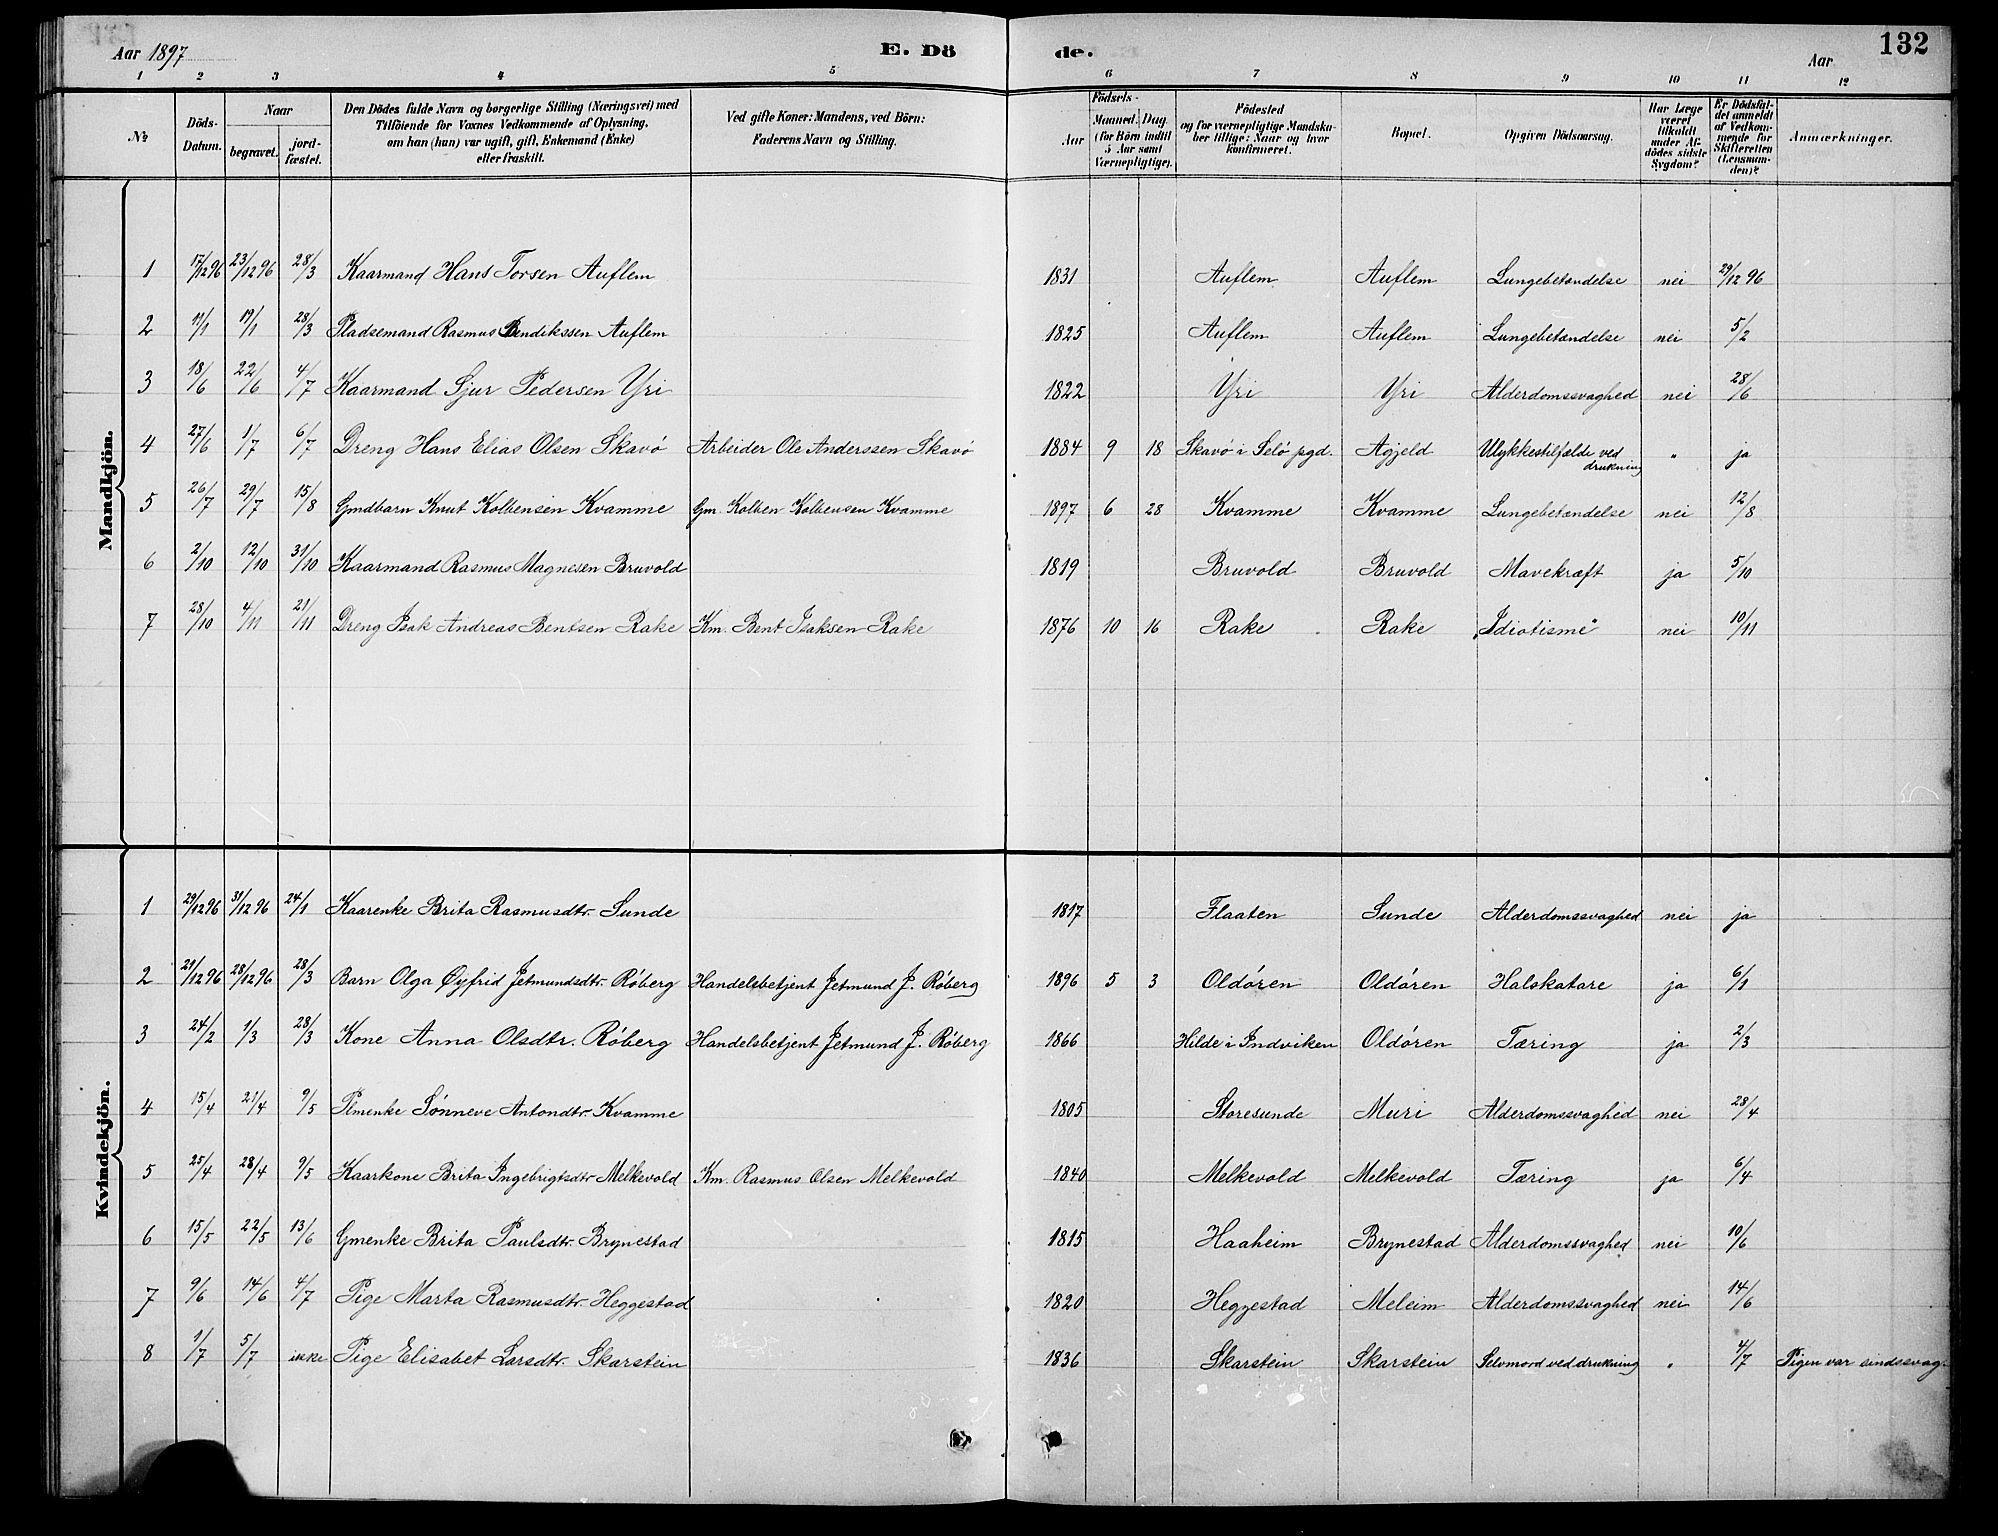 Aar 1897 E. Dö de. Aar 132
1 2 3 4 5 6 7 8 9 10 11 12
№ Döds-Datum. Naar begravet. jordfæstet. Den Dödes fulde Navn og borgerlige Stilling (Næringsvei) med Tilföiende for Voxnes Vedkommende af Oplysning, om han (hun) var ugift, gift, Enkemand (Enke) eller fraskilt. Ved gifte Koner: Mandens, ved Börn: Faderens Navn og Stilling. Födsels- Aar Maaned. Dag (for Börn indtil 5 Aar samt Værnepligtige). Födested og for værnepligtige Mandskaber tillige: Naar og hvor konfirmeret. Bopæl. Opgiven Dödsaarsag. Har Læge været tilkaldt under Afdödes sidste Sygdom? Er Dödsfaldet anmeldt af Vedkommende for Skifteretten (Lensmanden)? Anmærkninger.
Mandkjön.
1 17/12 96 23/12 96 28/3 Kaarmand Hans Torsen Auflem 1831 Auflem Auflem Lungebetændelse nei 29/12 96
2 11/1 19/1 28/3 Pladsemand Rasmus Bendikssen Auflem 1825 Auflem Auflem Lungebetændelse nei 5/2
3 18/6 22/6 4/7 Kaarmand Sjur Pedersen Yri 1822 Yri Yri Alderdomssvaghed nei 28/6
4 27/6 1/7 6/7 Dreng Hans Elias Olsen Skavø Arbeider Ole Anderssen Skavø 1884 9 18 Skavø i Selø pgd. Agjeld Ulykkestilfælde ved drukning " ja
5 26/7 29/7 15/8 Gmdbarn Knut Kolbensen Kvamme Gm. Kolben Kolbensen Kvamme 1897 6 28 Kvamme Kvamme Lungebetændelse nei 12/8
6 2/10 12/10 31/10 Kaarmand Rasmus Magnesen Bruvold 1819 Bruvold Bruvold Mavekræft ja 5/10
7 28/10 4/11 21/11 Dreng Isak Andreas Bentsen Rake Km. Bent Isaksen Rake 1876 10 16 Rake Rake "Idiotisme" nei 10/11
Kvindekjön.
1 29/12 96 31/12 96 24/1 Kaarenke Brita Rasmusdtr. Sunde 1817 Flaaten Sunde Alderdomssvaghed nei ja
2 21/12 96 28/12 96 28/3 Barn Olga Øyfrid Jetmundsdtr. Røberg Handelsbetjent Jetmund J. Røberg 1896 5 3 Oldøren Oldøren Halskatare ja 6/1
3 24/2 1/3 28/3 Kone Anna Olsdtr. Røberg Handelsbetjent Jetmund J. Røberg 1866 Hilde i Indviken Oldøren Tæring ja 2/3
4 15/4 21/4 9/5 Plmenke Sønneve Antondtr. Kvamme 1805 Storesunde Muri Alderdomssvaghed nei 28/4
5 25/4 28/4 9/5 Kaarkone Brita Ingebrigtsdtr Melkevold Km. Rasmus Olsen Melkevold 1840 Melkevold Melkevold Tæring ja 6/4
6 15/5 22/5 13/6 Gmenke Brita Paulsdtr. Brynestad 1815 Haaheim Brynestad Alderdomssvaghed nei 10/6
7 9/6 14/6 4/7 Pige Marta Rasmusdtr. Heggestad 1820 Heggestad Meleim Alderdomssvaghed nei 14/6
8 1/7 5/7 ikke Pige Elisabet Larsdtr. Skarstein 1836 Skarstein Skarstein Selvmord ved drukning " 4/7 Pigen var sindssvag.